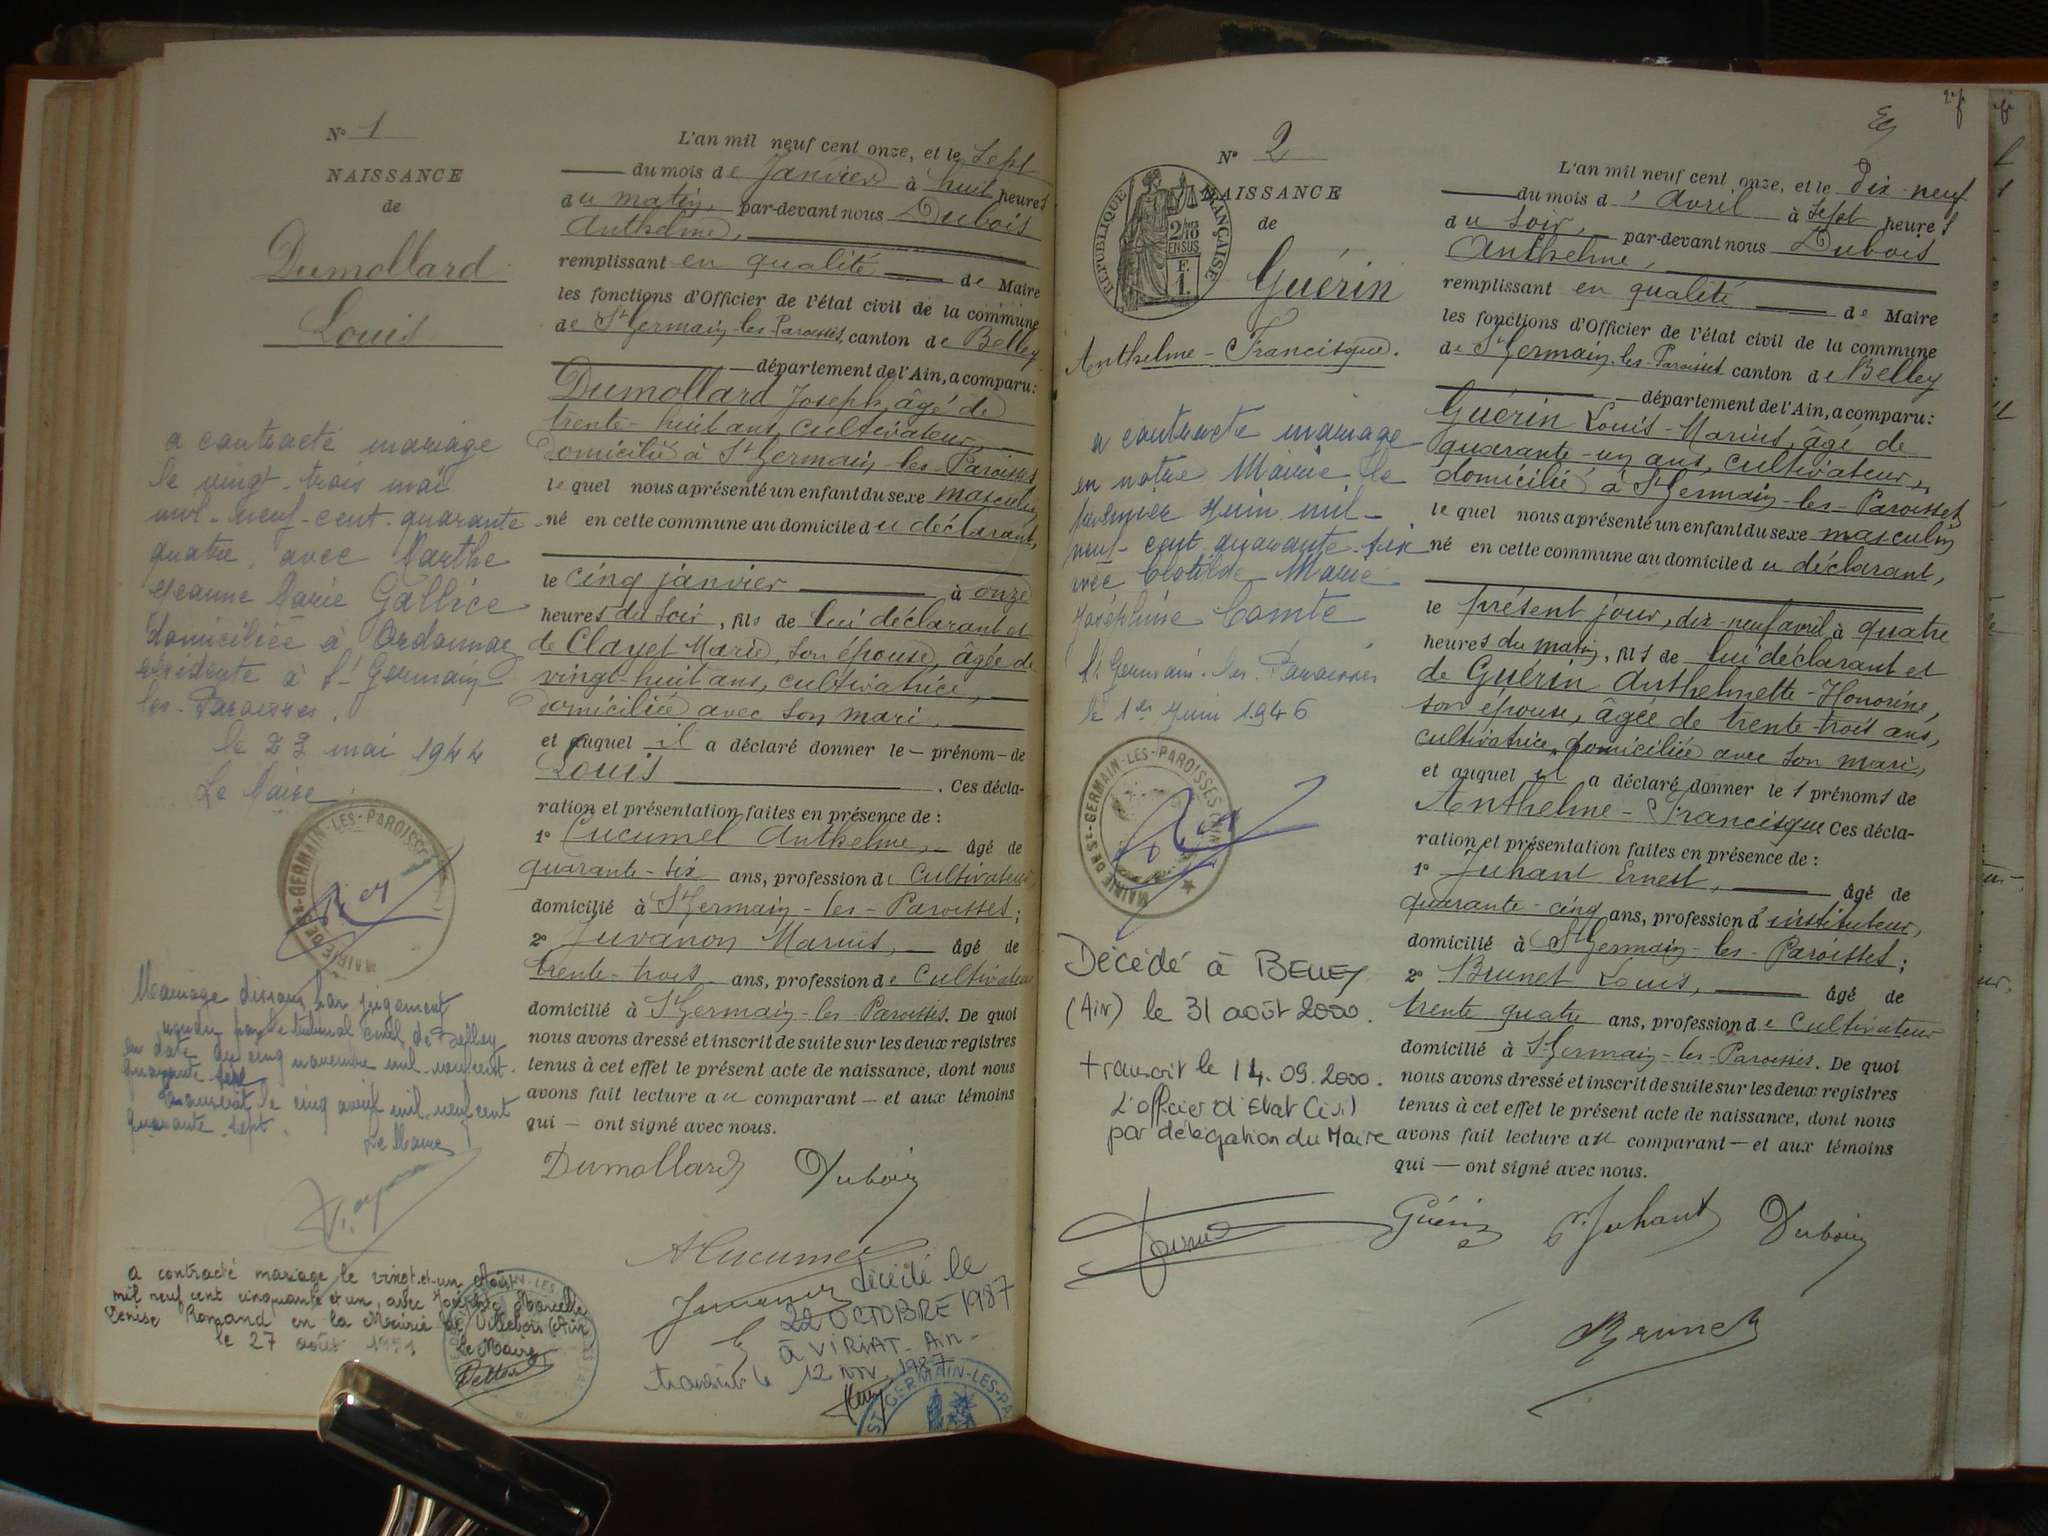 N° 1
NAISSANCE
de
Dumollard
Louis
a contracté mariage
le vingt-trois mai
mil-neuf-cent-quarante
quatre, avec Marthe
Jeanne Marie Gallice
domiciliée à Ordonnaz
résidente à St Germain
les-Paroisses.
le 23 mai 1944
Le Maire
MAIRIE DE St-GERMAIN-LES-PAROISSES
Mariage dissous par jugement
rendu par le tribunal civil de Belley
en date du cinq novembre mil-neuf cent-
quarante-six
transcrit le cinq avril mil-neuf cent
quarante-sept.
Le Maire
a contracté mariage le vingt-et-un Août
mil neuf cent cinquante et un, avec Marcelle
Denise Romand en la Mairie de Villebois (Ain)
le 27 août 1951
Le Maire
L'an mil neuf cent onze, et le sept
du mois de Janvier à huit heures
du matin, par-devant nous Dubois
Anthelme,
remplissant en qualité de Maire
les fonctions d'Officier de l'état civil de la commune
de St Germain-les-Paroisses, canton de Belley
département de l'Ain, a comparu:
Dumollard Joseph, âgé de
trente-huit ans, cultivateur,
domicilié à St Germain-les-Paroisses,
lequel nous a présenté un enfant du sexe masculin
né en cette commune au domicile du déclarant,
le cinq janvier à onze
heures du soir, fils de lui déclarant et
de Clayet Marie, son épouse, âgée de
vingt-huit ans, cultivatrice,
domiciliée avec son mari.
et auquel il a déclaré donner le — prénom — de
Louis . Ces décla-
ration et présentation faites en présence de :
1° Cucumel Anthelme, âgé de
quarante-six ans, profession de Cultivateur,
domicilié à St Germain-les-Paroisses;
2° Juvanon Marius, — âgé de
trente-trois ans, profession de Cultivateur
domicilié à St Germain-les Paroisses. De quoi
nous avons dressé et inscrit de suite sur les deux registres
tenus à cet effet le présent acte de naissance, dont nous
avons fait lecture au comparant — et aux témoins
qui — ont signé avec nous.
Dumollard Dubois
A Cucumel
Juvanon
décédé le
22 OCTOBRE 1987
à VIRIAT-Ain-
transcrit le 12 nov. 1987
ST GERMAIN-LES-PA
N° 2
NAISSANCE
de
REPUBLIQUE FRANÇAISE
2/10
EN SUS
F.
1.
Guérin
Anthelme-Francisque.
a contracté mariage
en notre Mairie le
premier Juin mil-
neuf-cent quarante-six
avec Clotilde Marie
Joséphine Comte
St Germain-les-Paroisses
le 1er Juin 1946
MAIRIE DE St-GERMAIN-LES-PAROISSES (AIN)
Décédé à BELLEY
(Ain) le 31 août 2000.
transcrit le 14.09.2000.
L'officier d'Etat Civil
par délégation du Maire
L'an mil neuf cent onze, et le dix-neuf
du mois d'avril à sept heures
du soir, par-devant nous Dubois
Anthelme,
remplissant en qualité de Maire
les fonctions d'Officier de l'état civil de la commune
de St Germain-les-Paroisses canton de Belley
département de l'Ain, a comparu:
Guérin Louis-Marius, âgé de
quarante-un ans, cultivateur,
domicilié à St Germain-les-Paroisses
lequel nous a présenté un enfant du sexe masculin
né en cette commune au domicile du déclarant,
le présent jour, dix-neuf avril à quatre
heures du matin, fils de lui déclarant et
de Guérin Anthelmette-Honorine,
son épouse, âgée de trente-trois ans,
cultivatrice, domiciliée avec son mari,
et auquel il a déclaré donner les prénoms de
Anthelme-Francisque Ces décla-
ration et présentation faites en présence de :
1° Juhant Ernest, âgé de
quarante-cinq ans, profession d'instituteur,
domicilié à St Germain-les-Paroisses;
2° Brunet Louis, âgé de
trente quatre ans, profession de Cultivateur
domicilié à St Germain-les-Paroisses. De quoi
nous avons dressé et inscrit de suite sur les deux registres
tenus à cet effet le présent acte de naissance, dont nous
avons fait lecture au comparant — et aux témoins
qui — ont signé avec nous.
Guérin E. Juhant Dubois
Brunet